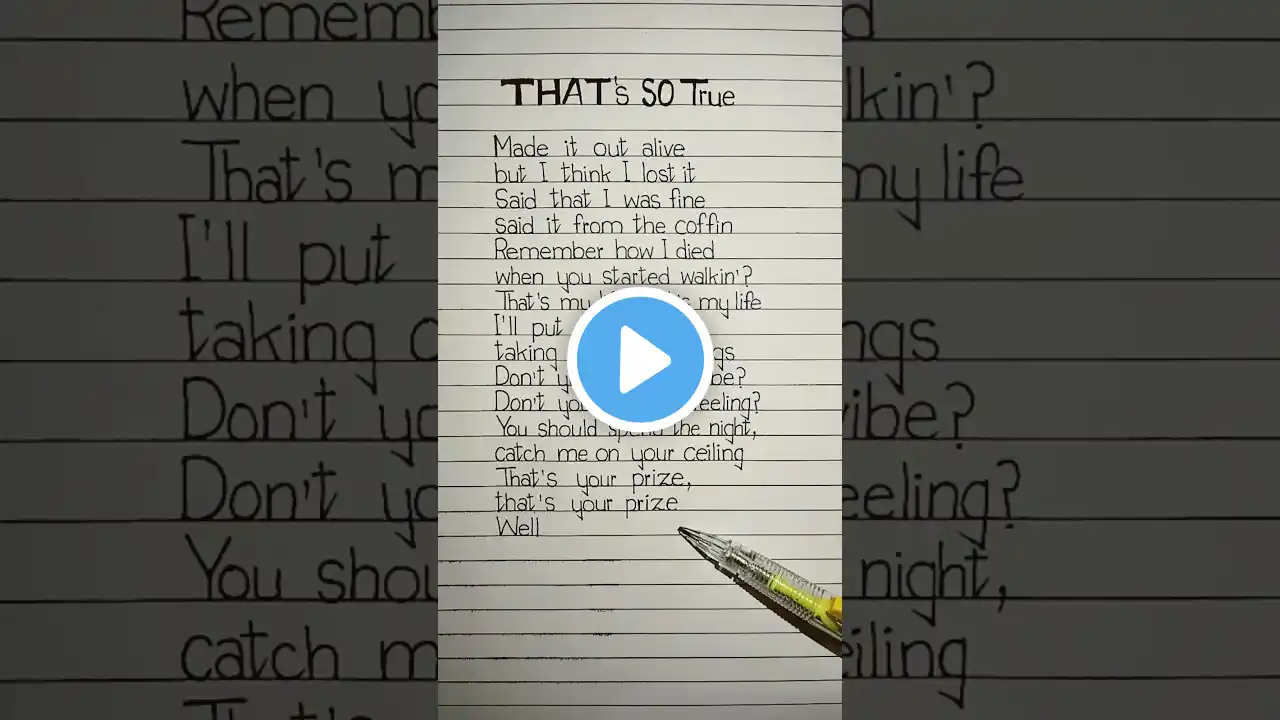 THAT's SO True
Made it out alive
but I think I lost it
Said that I was fine
said it from the coffin
Remember how I died
when you started walkin'?
That's my my life
I'll put
taking
Don't
Don't you feeling?
You should spend the night,
catch me on your ceiling
That's your prize,
that's your prize
Well